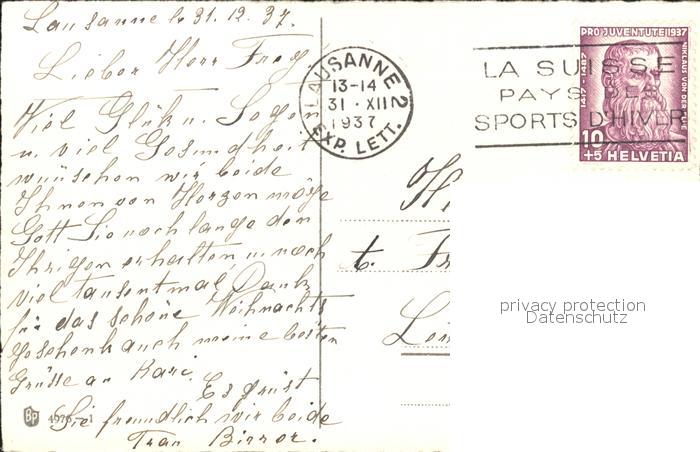 Lausanne d. 31. 12. 37.
Lieber Herr Frey
Viel Glük u. Segen
u. viel Gesundheit
wünschen wir beide
Ihnen von Herzen möge
Gott Sie noch lange den
Ihrigen erhalten, u. noch
viel tausentmal Dank
für das schöne Weihnachts
geschenk auch meine besten
Grüsse an
Es grüst
Sie freundlich wir beide
Frau Birrer.
LAUSANNE 2
13-14
31·XII
1937
EXP. LETT.
LA SUISSE
PAYS DES
SPORTS D'HIVER
PRO JUVENTUTE 1937
NIKLAUS VON DER FLÜE
1417-1487
10
+5 HELVETIA
H
t. Fr
privacy protection
Datenschutz
Bp